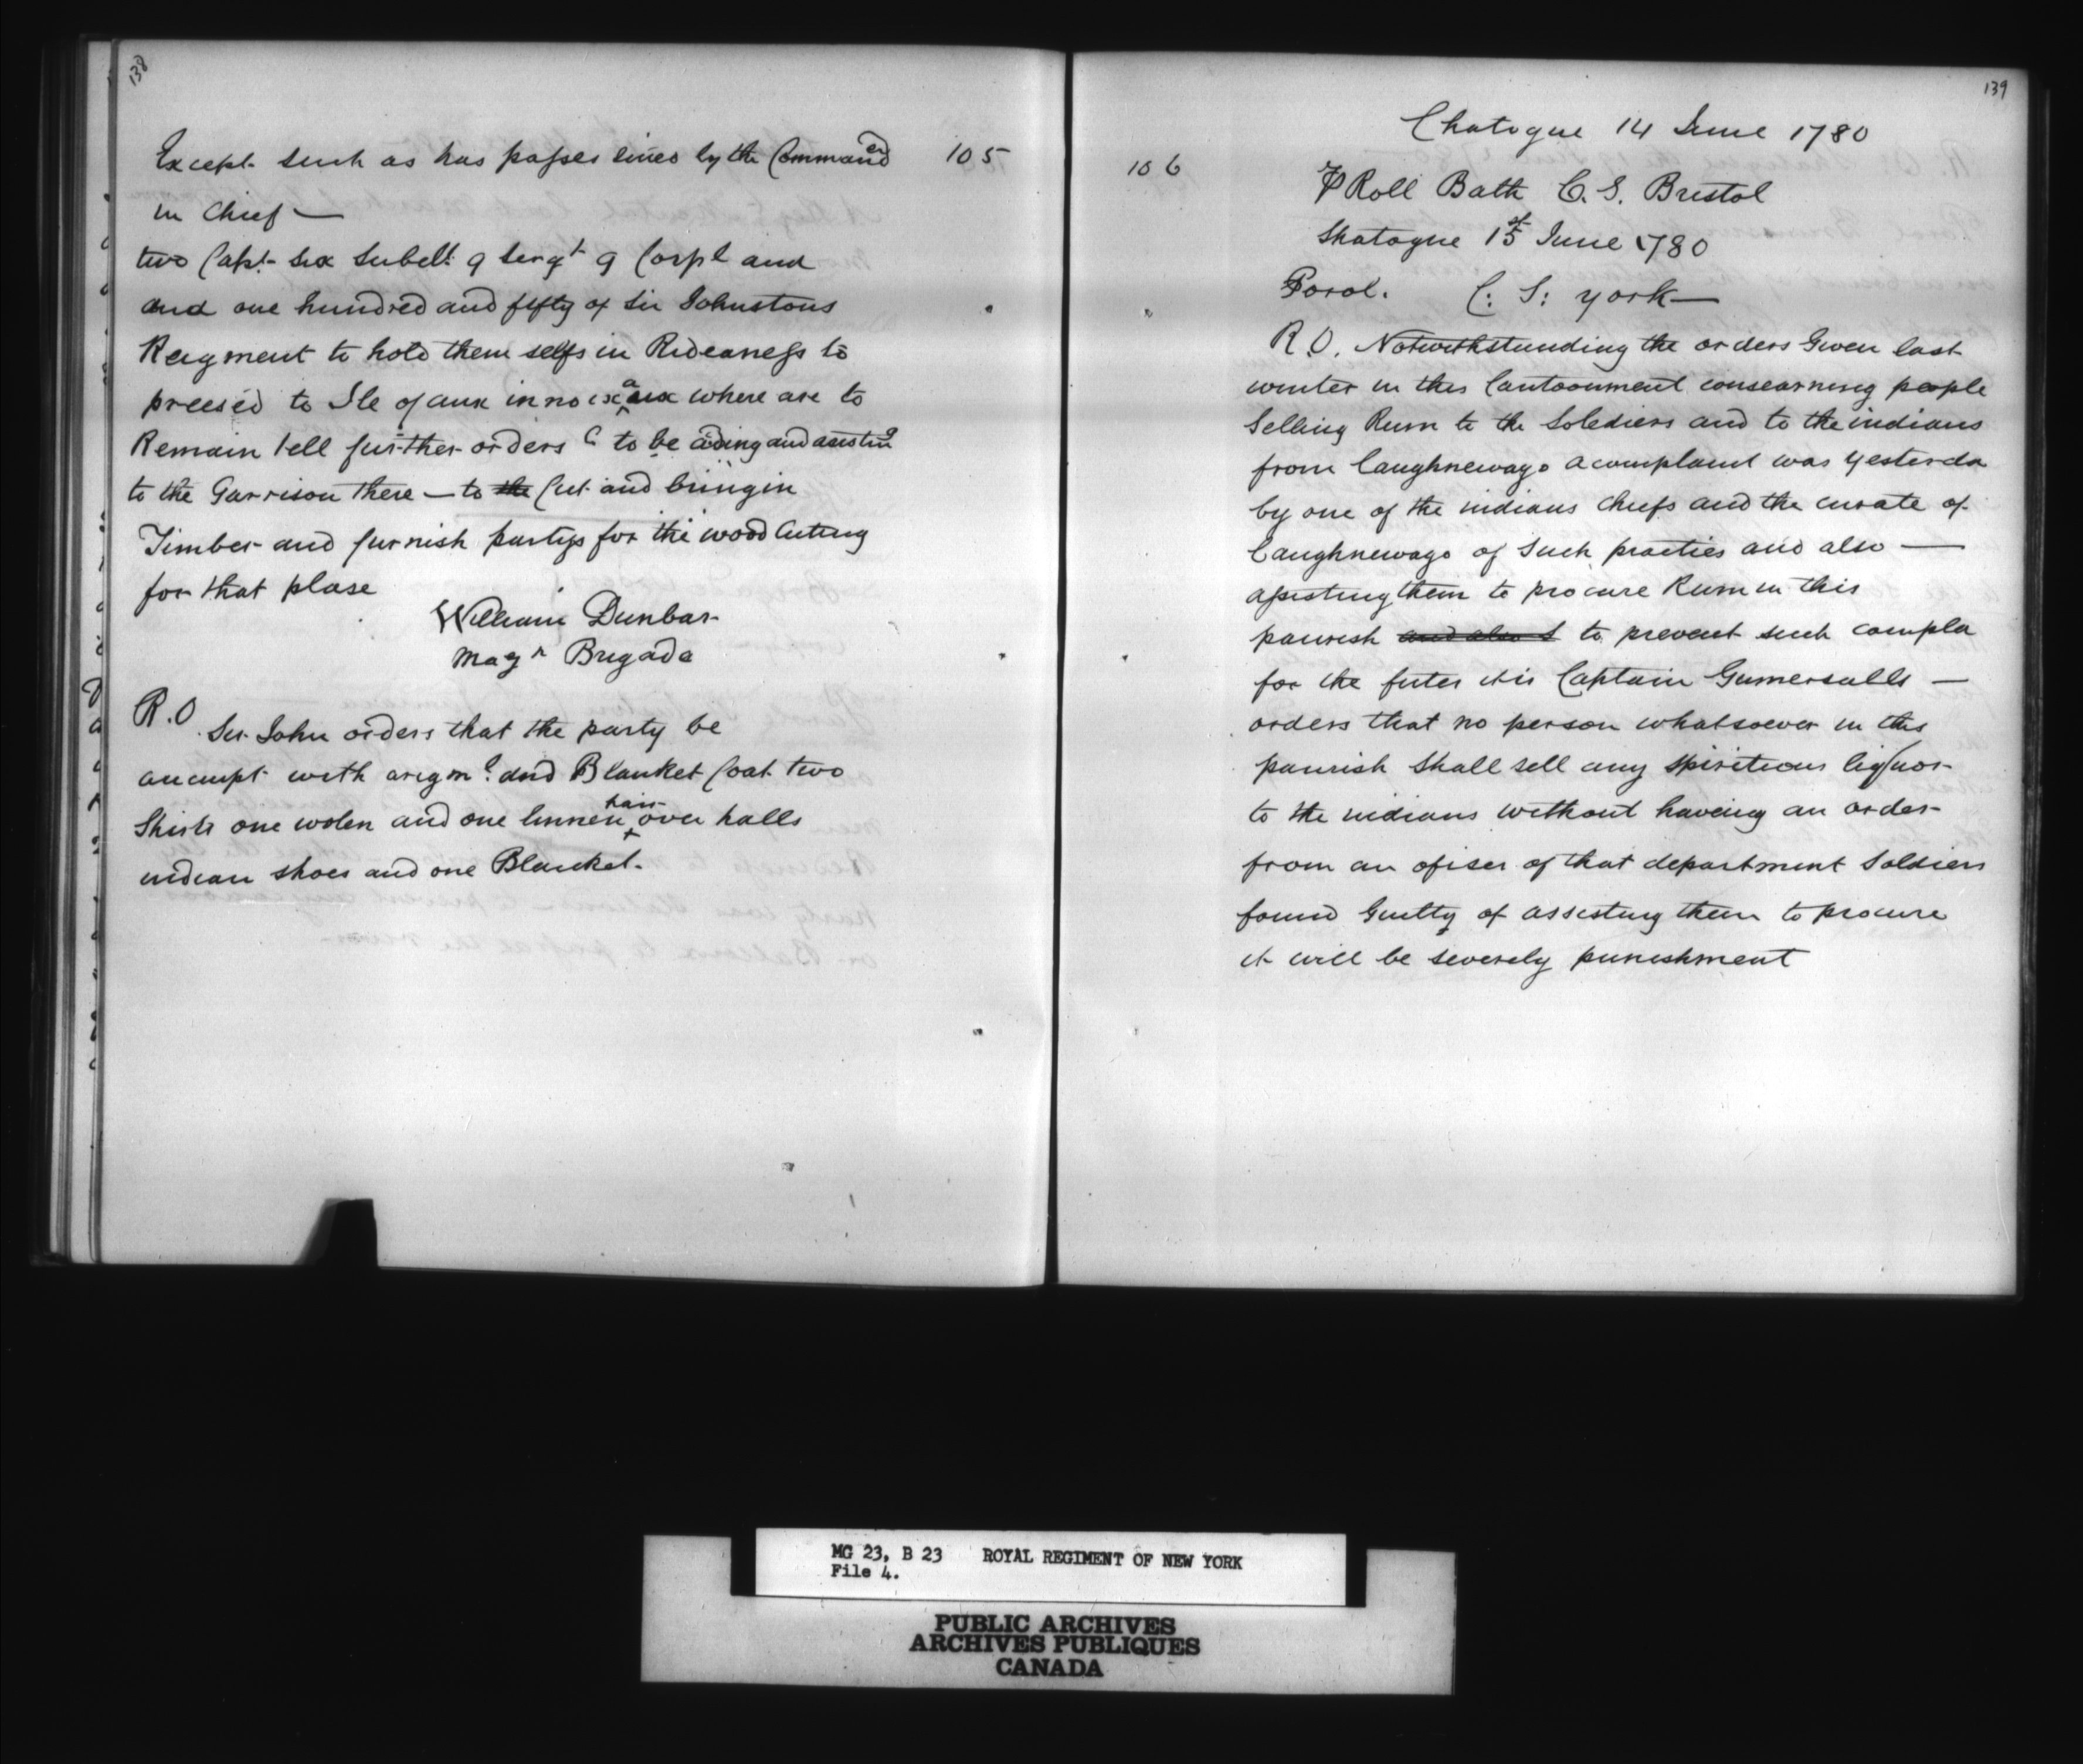 138
Except such as has passes sined by the Commander 105
in Chief —
two Capt. six Subelt. 9 Sergt 9 Corpl and
and one hundred and fifty of Sir Johnstons
Reigment to hold them selfs in Rideaness to
preesed to Ile of aux where are to
Remain tell further orders to be aiding and asisting
to the Garrison there — to the Cut and bringin
Timber and furnish partys for the wood Cuting
for that plase
William Dunbar
Magr Brigade
R.O Sir John orders that the party be
and Blanket Coat two
Shirts one wolen and one linnen hair over halls
indian shoes and one Blanket.
139
Chatogue 14 June 1780
106
P Roll Bath C. S. Bristol
Shatogue 15st June 1780
Porol. C: S: york —
R.O. Notwithstunding the orders Given last
winter in this Cantoonment consearning people
Selling Rum to the Solediers and to the indians
from Caughnewago a complant was yesterda
by one of the indians Chiefs and the curate of
Caughnewago of Such practies and also —
assisting them to procure Rum in this
paurish and also t to prevent such compla
for the futer it is Captain Gumersalls —
orders that no person whatsoever in this
paurish Shall sell any Spiritious liquor
to the indians without having an order
from an ofiser of that department Soldiers
found Guilty of assisting them to procure
it will be severely punishment
MG 23, B 23 ROYAL REGIMENT OF NEW YORK
File 4.
PUBLIC ARCHIVES
ARCHIVES PUBLIQUES
CANADA